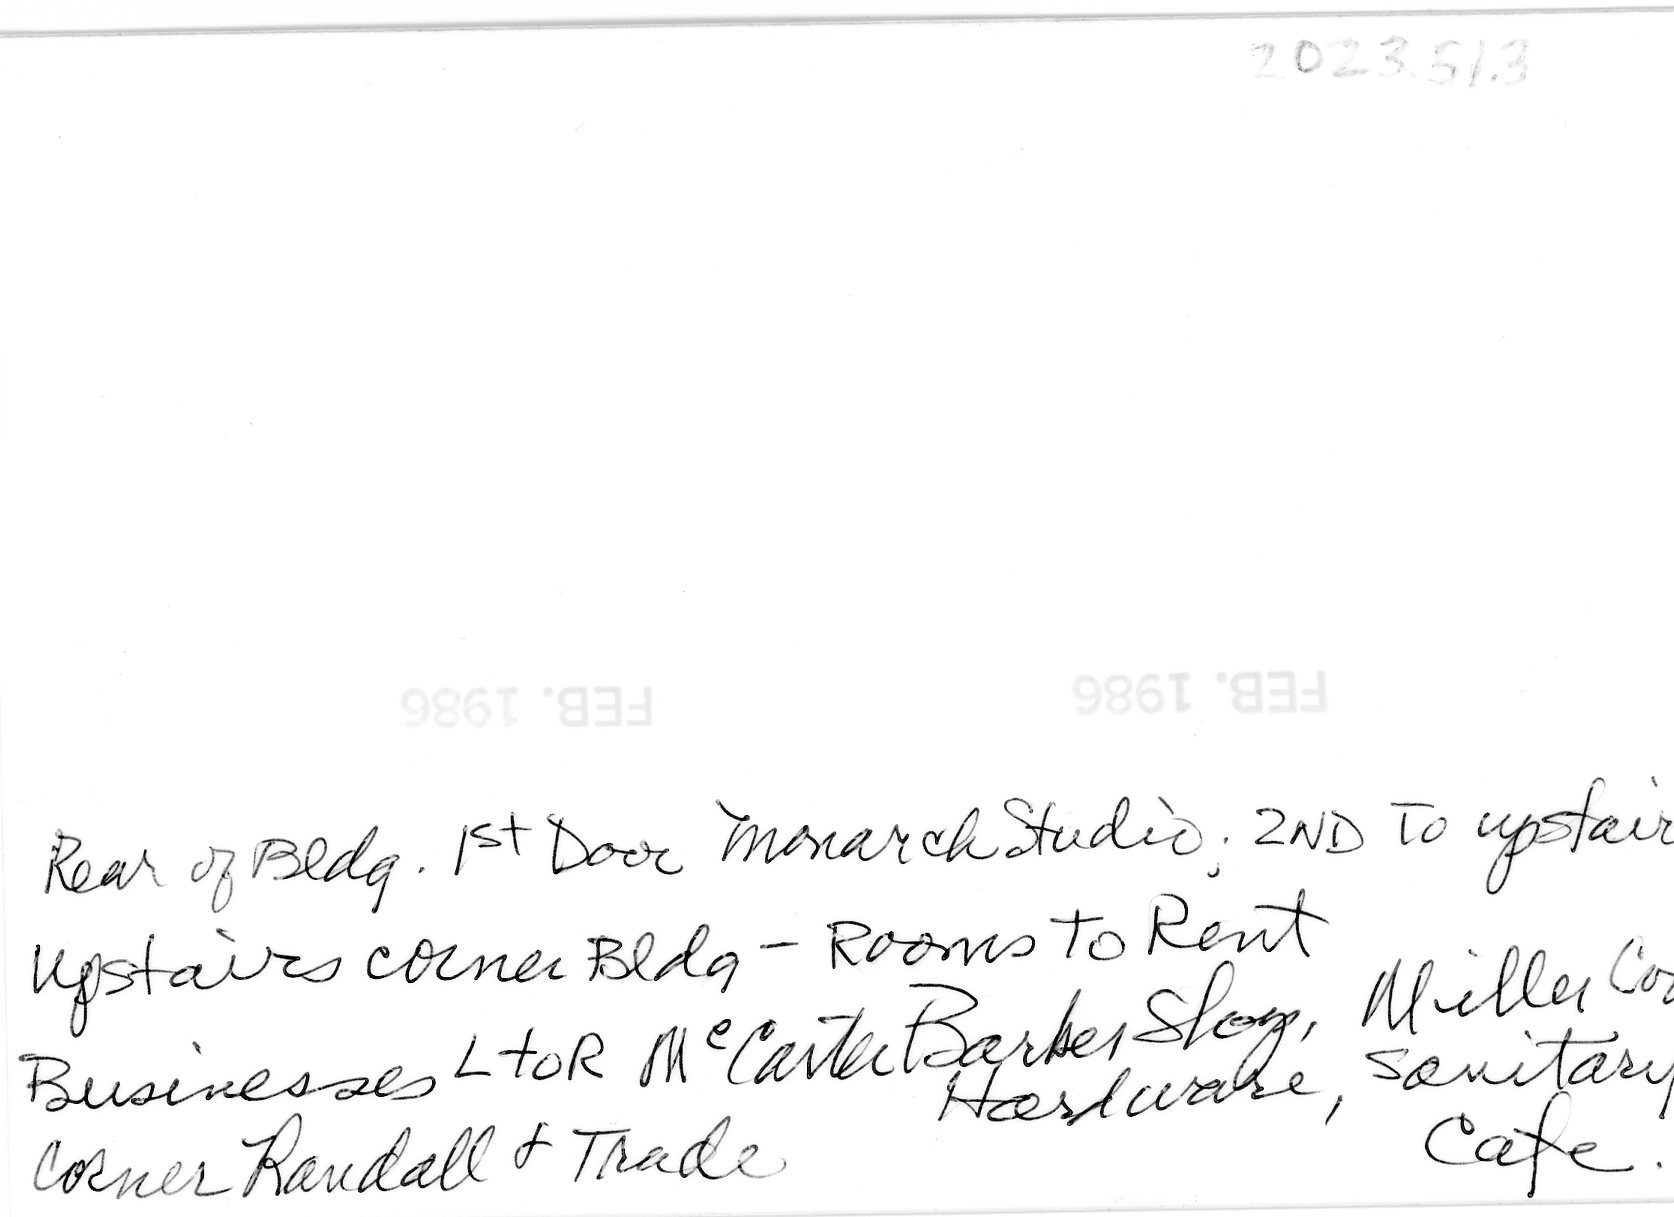 2023.51.3
FEB. 1986 FEB. 1986
Rear of Bldg. 1st Door Monarch Studio; 2ND To upstair
upstairs corner Bldg - Rooms to Rent
Businesses L to R McCarter Barber Shop, Miller Co
Hardware, Sanitary
Corner Randall & Trade
Cafe.